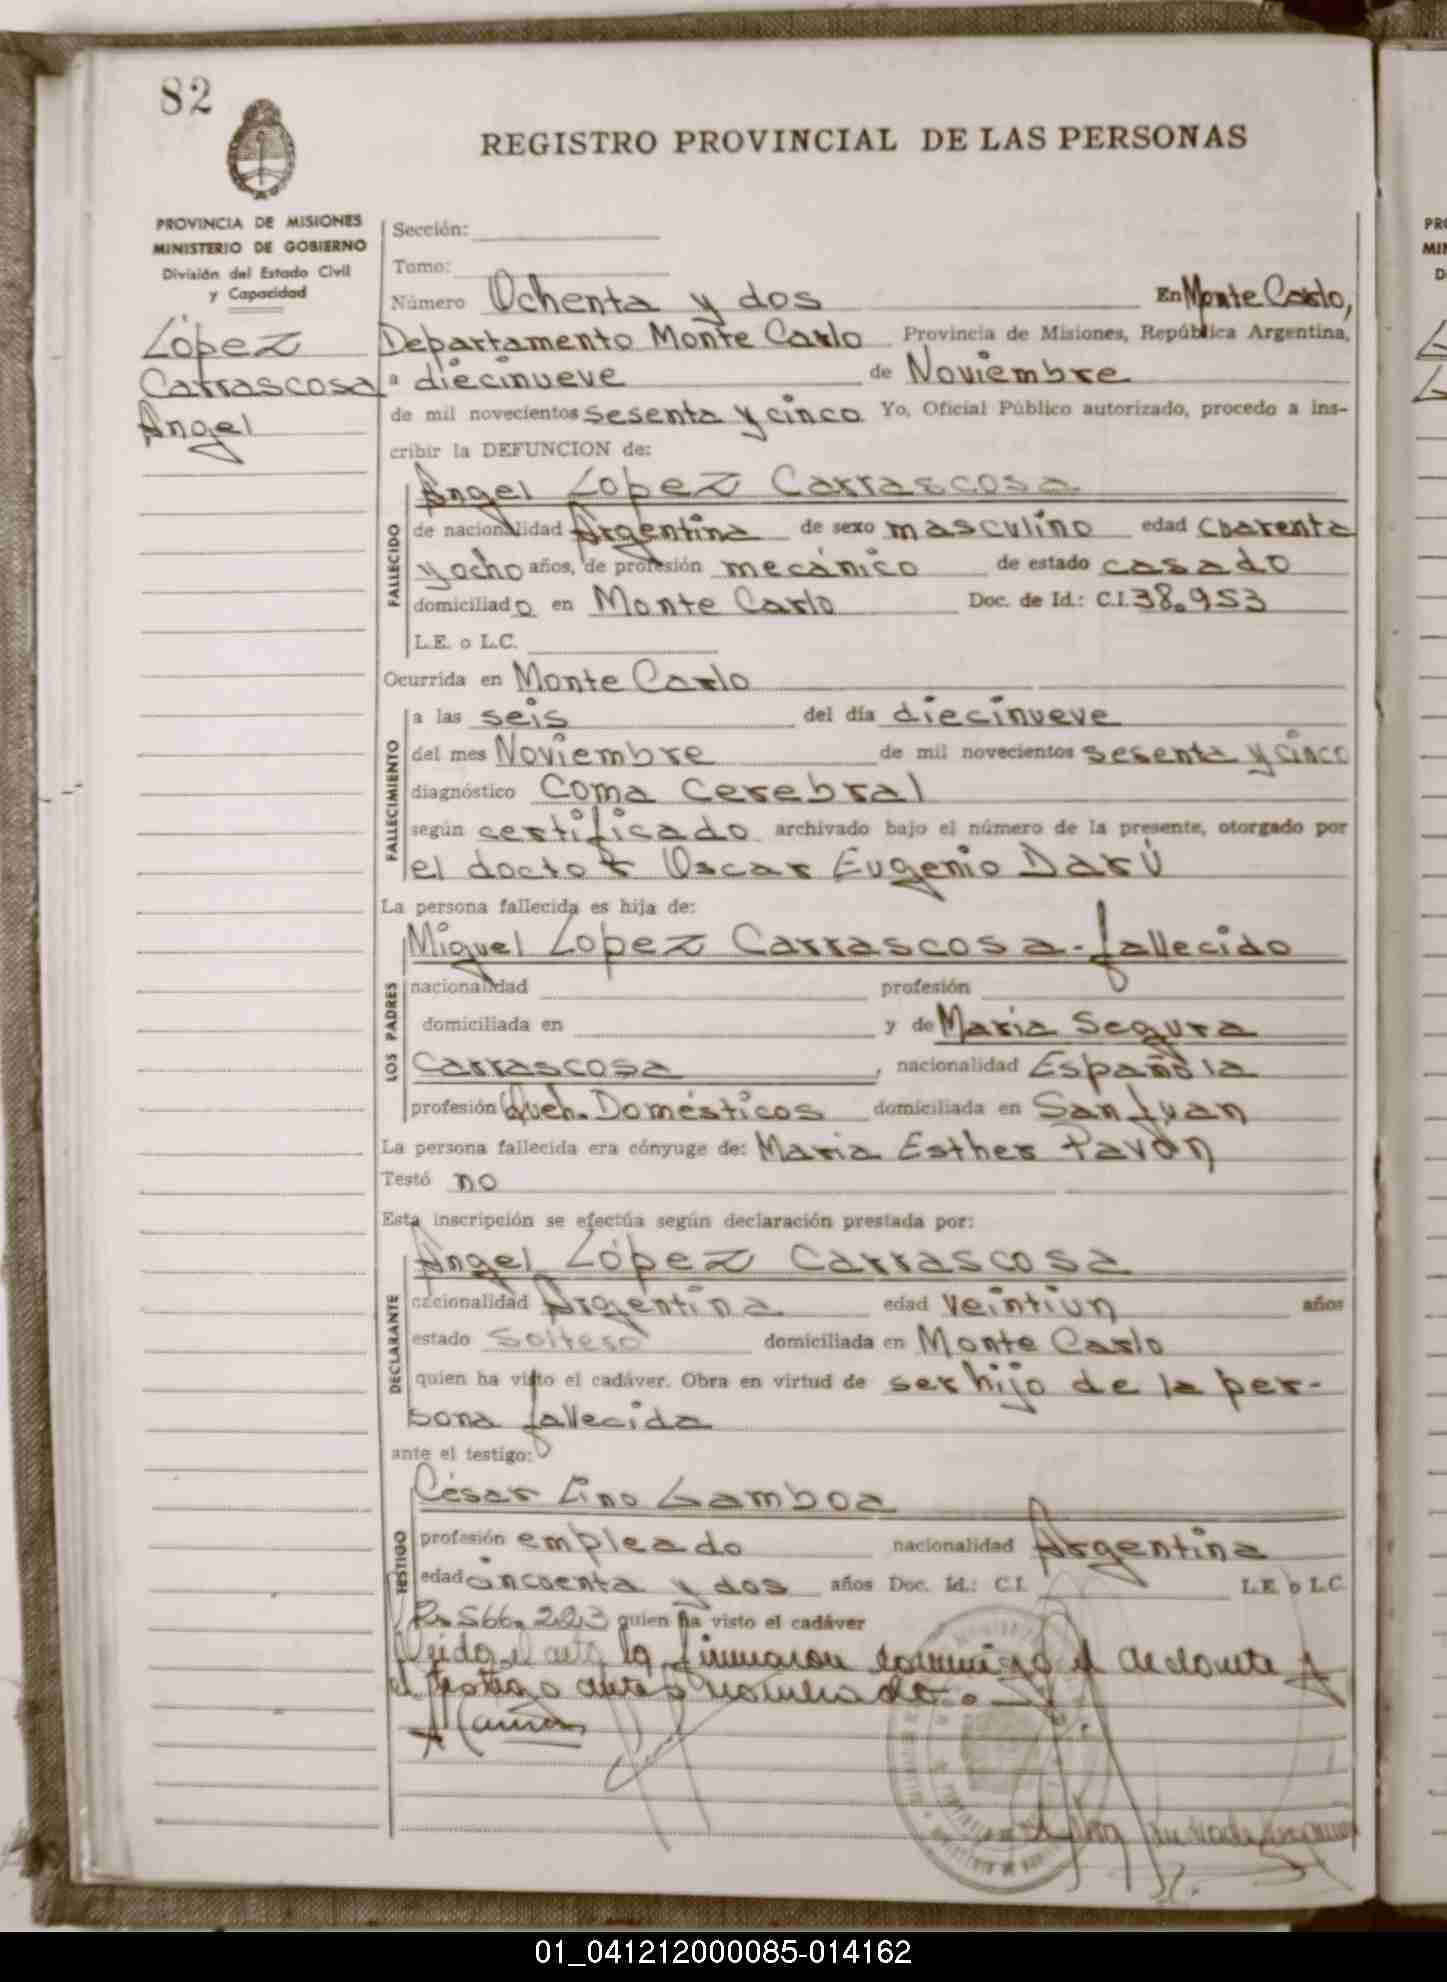 82
REGISTRO PROVINCIAL DE LAS PERSONAS
PROVINCIA DE MISIONES
MINISTERIO DE GOBIERNO
División del Estado Civil
y Capacidad
López
Carrascosa
Angel
Sección:
Tomo:
Número Ochenta y dos En Monte Carlo,
Departamento Monte Carlo Provincia de Misiones, República Argentina,
a diecinueve de Noviembre
de mil novecientos sesenta y cinco Yo, Oficial Público autorizado, procedo a ins-
cribir la DEFUNCION de:
FALLECIDO
Angel López Carrascosa
de nacionalidad Argentina de sexo masculino edad cuarenta
y ocho años, de profesión mecánico de estado casado
domiciliado en Monte Carlo Doc. de Id.: C.I. 38.953
L.E. o L.C.
Ocurrida en Monte Carlo
FALLECIMIENTO
a las seis del día diecinueve
del mes Noviembre de mil novecientos sesenta y cinco
diagnóstico Coma Cerebral
según certificado archivado bajo el número de la presente, otorgado por
el doctor Oscar Eugenio Darú
La persona fallecida es hija de:
LOS PADRES
Miguel López Carrascosa - fallecido
nacionalidad profesión
domiciliada en y de Maria Segura
Carrascosa, nacionalidad Española
profesión Queh. Domésticos domiciliada en San Juan
La persona fallecida era cónyuge de: Maria Esther Pavón
Testó no
Esta inscripción se efectúa según declaración prestada por:
DECLARANTE
Angel López Carrascosa
nacionalidad Argentina edad veintiun años
estado Soltero domiciliada en Monte Carlo
quien ha visto el cadáver. Obra en virtud de ser hijo de la per-
sona fallecida
ante el testigo:
TESTIGO
César Lino Gamboa
profesión empleado nacionalidad Argentina
edad cincuenta y dos años Doc. Id.: C.I. L.E. o L.C.
2.566.223 quien ha visto el cadáver
Leída el acta la firmaron conmigo el declarante y
el testigo antes nombrado.
PR
MI
D
01_041212000085-014162